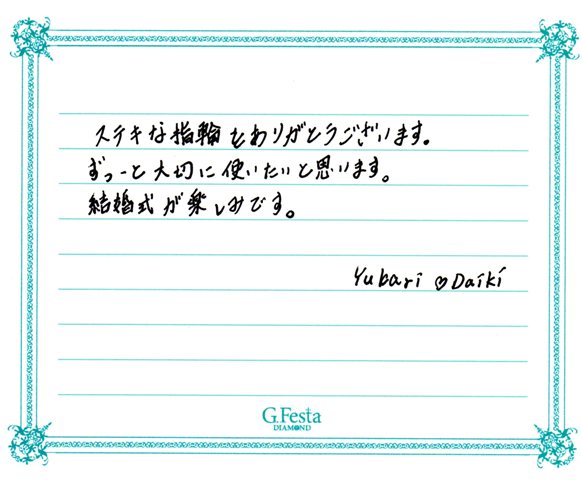 ステキな指輪をありがとうございます。
ずっーと大切に使いたいと思います。
結婚式が楽しみです。
Yubari ♡ Daiki
G.Festa
DIAMOND